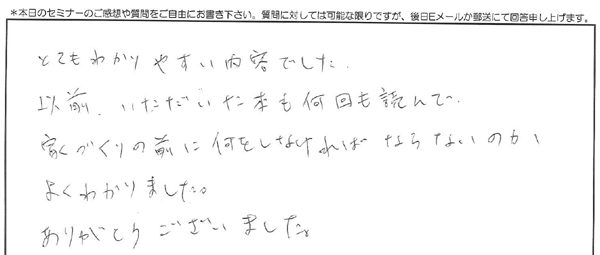 *本日のセミナーのご感想や質問をご自由にお書き下さい。質問に対しては可能な限りですが、後日Eメールか郵送にて回答申し上げます。
とてもわかりやすい内容でした。
以前、いただいた本も何回も読んで、
家づくりの前に何をしなければならないのか
よくわかりました。
ありがとうございました。